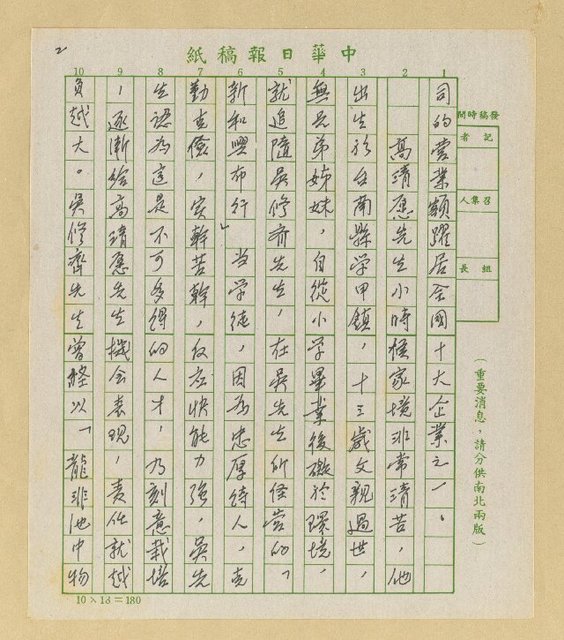 2
中華日報稿紙
發稿時間
記者
召集人
組長
(重要消息，請分供南北兩版)
1 2 3 4 5 6 7 8 9 10
司的營業額躍居全國十大企業之一。
高清愿先生小時候家境非常清苦，他
出生於台南縣学甲鎮，十三歲父親過世，
無兄弟姊妹，自從小学畢業後礙於環境，
就追隨吳修齊先生，在吳先生所經營的「
新和興布行」當学徒，因為忠厚待人，克
勤克儉，实幹苦幹，反應快能力強，吳先
生認為這是不可多得的人才，乃刻意栽培
，逐漸給高清愿先生機会表現，責任就越
負越大。吳修齊先生曾經以「龍非池中物
10×18=180